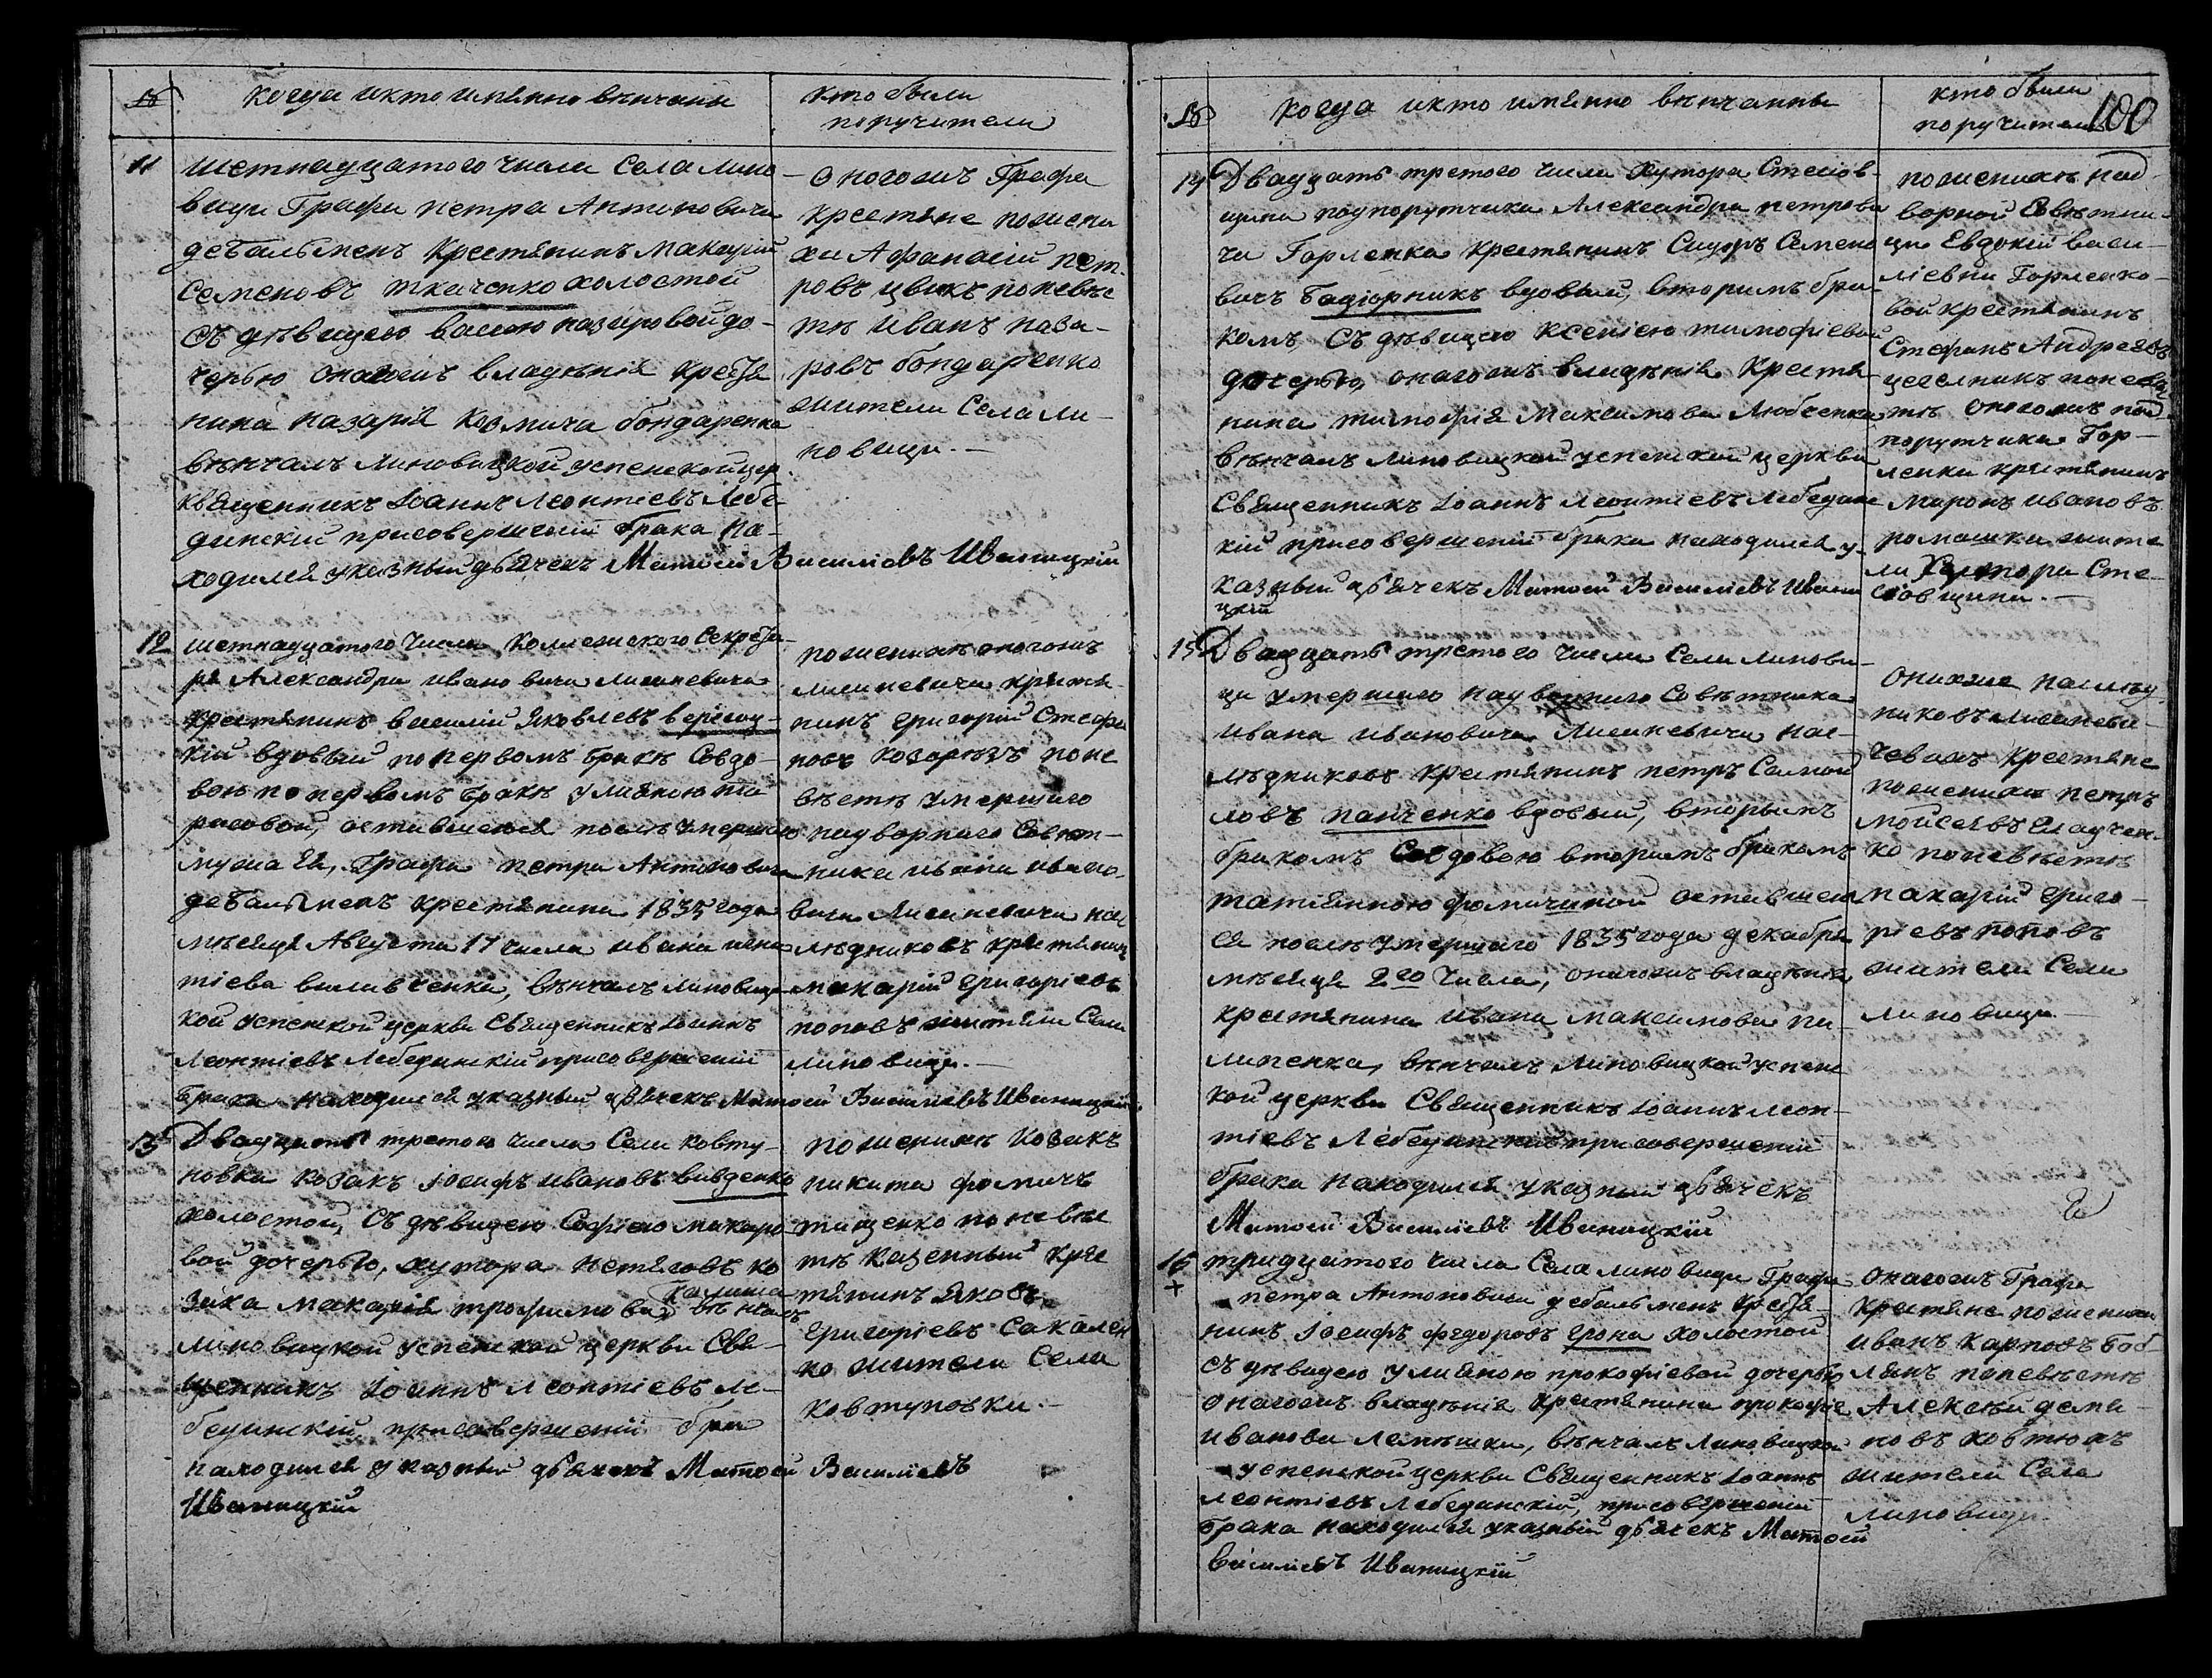 №
когда и кто имянно венчаны
кто были
поручители
11
шетнадцатого числа Села Липо-
вицы Графа петра Антоновича
деБальменъ Крестянинъ Макарій
Семеновъ ткаченко холостой
съ дѣвицею назаровой до-
черью онагожъ владѣнія крестя
нина назарія Козмича бондаренка
вѣнчалъ Липовицкой успенской цер
Священникъ Іоаннъ Леонтіевъ Лебе-
динскій присовершеніи брака на-
ходился указный дьячекъ Матвей Василіевъ Иваницкій
Оногожъ Графа
крестяне пожени
хи Афанасій пет-
ровъ цвикъ поневѣс
тѣ Иванъ наза-
ровъ бондаренко
жители Села Ли-
повици.
12
шетнадцатого числа Колежского Секрета-
ря Александра Ивановича Лисаневича
крестянинъ василій Яковлевъ
кій вдовый попервомъ бракѣ Совдо-
вою попервомъ бракѣ улияною та
расовой, оставшеюся послѣ умершаго
мужа Ея, Графа петра Антоновича
деБальменъ крестянина 1835 года
мѣсяца Августа 17 числа ивана игна
тіева вѣнчалъ Липовиц
кой успенской церкви Священникъ Іоаннъ
Леонтіевъ Лебединскій присовершеніи
брака находился указный дьячекъ Матвей Василіевъ Иваницкій
поженихѣ оногожъ
лисаневича крестя
нинъ григорій Стефа
новъ поне
вѣстѣ умершаго
надворного Совѣт-
ника ивана ивано-
вича Лисаневича нас
лѣдниковъ крестянинъ
макарій григоріевъ
поповъ жители Села
Липовици.
13
Двадцать третого числа Села Ковту-
новки козакъ Іосифъ Ивановъ вивденко
холостой, съ дѣвицею Софіею макаро
вой дочерью, хутора ко
зака макарія трофимова вѣнчалъ
липовицкой успенской церкви Свя-
щенникъ Іоаннъ Леонтіевъ Ле-
бединскій, присовершеніи бра
находился указный дьячекъ Матвей Василіевъ
Иваницкій
поженихѣ козакъ
никита фомичъ
тищенко поневѣс
тѣ казенный крес
тянинъ Яковъ
григоріевъ
ко жители Села
ковтуновки.
№
когда и кто имянно вѣнчанны
кто были
поручители
100
14
Двадцать третого числа Хутора Стасов-
щины подпорутчика Александра петрова
ча Горленка крестянинъ Сидоръ Семено
вичъ вдовый, вторымъ бра-
комъ, съ дѣвицею ксеніею тимофіевой
дочерью, онагожъ владѣнія крестя-
нина тимофія Максимова Любченка
вѣнчалъ липовицкой успенской церкви
Священникъ Іоаннъ Леонтіевъ Лебедин
кій присовершеніи брака находился у-
казный дьячекъ Матвей Василіевъ Ивани
цкій
поженихѣ над
ворной Совѣтни-
ци Евдокіи васи-
ліевны Горленко-
вой крестянинъ
Стефанъ Андреевъ
цегелникъ поневѣс
тѣ оногожъ под
порутчика Гор-
ленка крестянинъ
миронъ ивановъ
ромашка жите
ли Хутора Ста-
совщины.
15
Двадцать третого числа Села липови-
ци умершаго надворного Совѣтника
ивана ивановича Лисаневича нас-
лѣдниковъ крестянинъ петръ Самой
ловъ панченко вдовый, вторымъ
бракомъ Совдовою вторымъ бракомъ
татиянною оставшею
ся послѣ умершаго 1835 года декабря
мѣсяца 2го числа, онагожъ владѣнія
крестянина ивана максимова пи-
липенка, вѣнчалъ липовицкой успен
кой церкви Священникъ Іоаннъ леон-
тіевъ Лебединскій присовершеніи
брака находился указный дьячекъ
Матвей Василіевъ Иваницкій
Онихже наслѣд
никовъ лисаневи-
чевыхъ крестяне
поженихѣ петръ
мойсеевъ
ко поневѣстѣ
макарій григо-
ріевъ поповъ
жители Села
липовици
16
+
тридцатого числа Села липовици Графа
петра Антоновича дебальменъ крестя-
нинъ Іосифъ федоровъ ерона холостой
съ дѣвицею улияною прокофіевой дочерью
онагожъ владѣнія крестянина прокофія
иванова лемешки, вѣнчалъ липовицкой
успенской церкви Священникъ Іоаннъ
леонтіевъ Лебединскій, присовершеніи
брака находился указный дьячекъ Матвей
Василіевъ Иваницкій
Онагожъ Графа
крестяне поженихѣ
иванъ карповъ
поневѣстѣ
Алексѣй демя-
новъ ковтюхъ
жители Села
липовици.